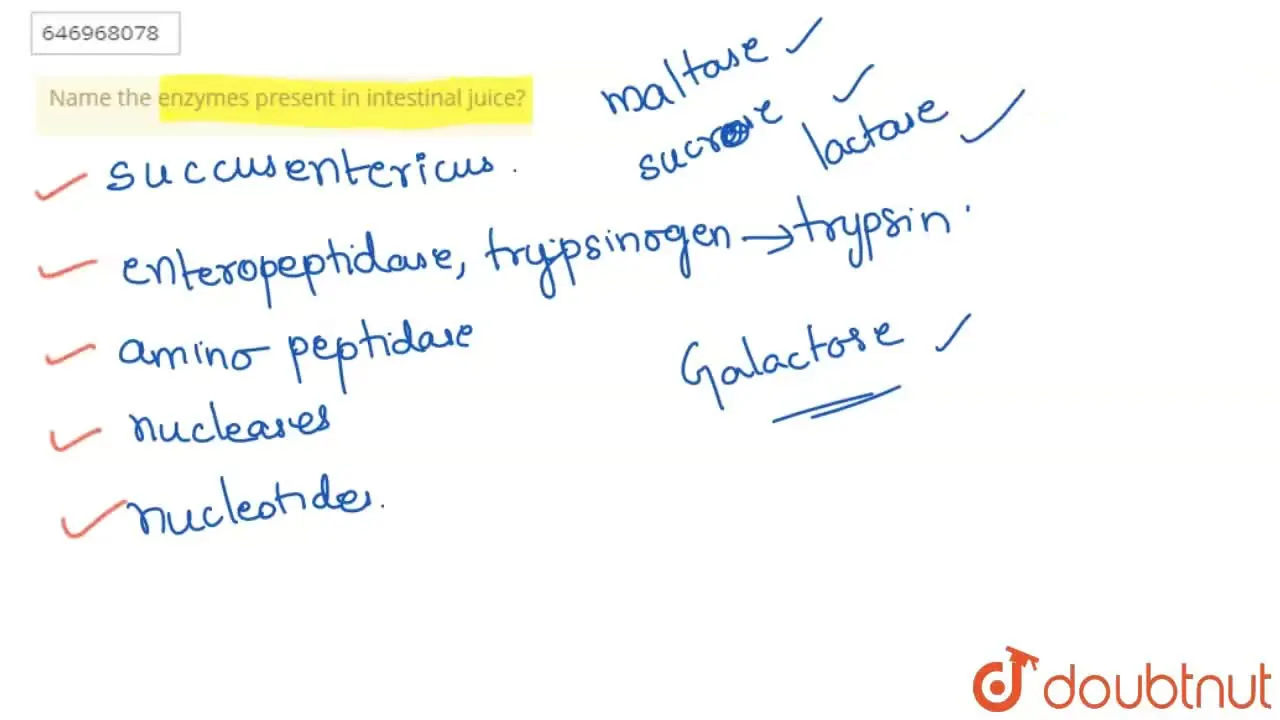 646968078
Name the enzymes present in intestinal juice?
maltase
sucrose
lactase
succusentericus.
enteropeptidase, trypsinogen → trypsin.
amino peptidase
Galactose
nucleases
nucleotides.
doubtnut